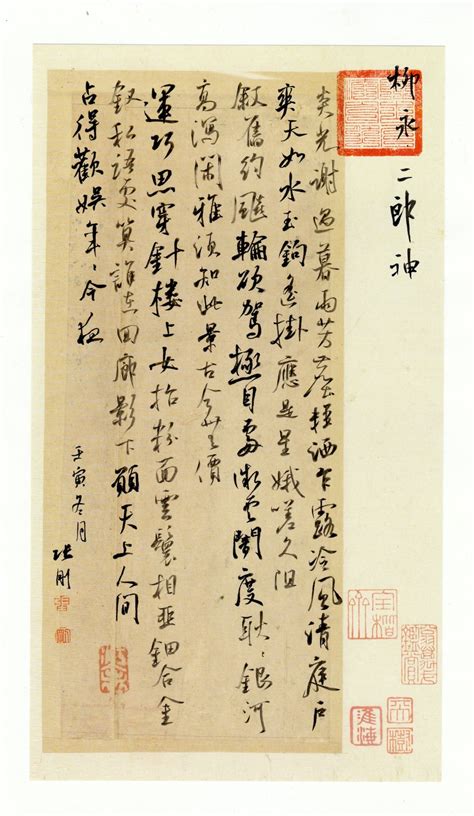 柳永 二郎神
炎光謝過暮雨芳塵輕洒乍露冷風清庭戶
爽天如水玉鉤遙掛應是星娥嗟久阻
敘舊約飈輪欲駕極目處微雲闇度耿〻銀河
高瀉閑雅須知此景古今無價
運巧思穿針樓上女抬粉面雲鬟相亞鈿合金
釵私語處算誰在回廊影下願天上人間
占得歡娛年〻今夜
壬寅冬月 張剛